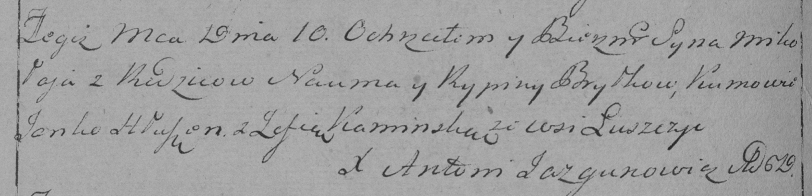 Tegiż Mca Dnia 10. Ochrzciłem y Bierzm Syna Miko
łaja z Rodzicow Nauma y Krypiny Brytkow, Kumowie
Janko z Zofią Kaminską ze wsi Luszczy
X Antoni Jazgunowicz